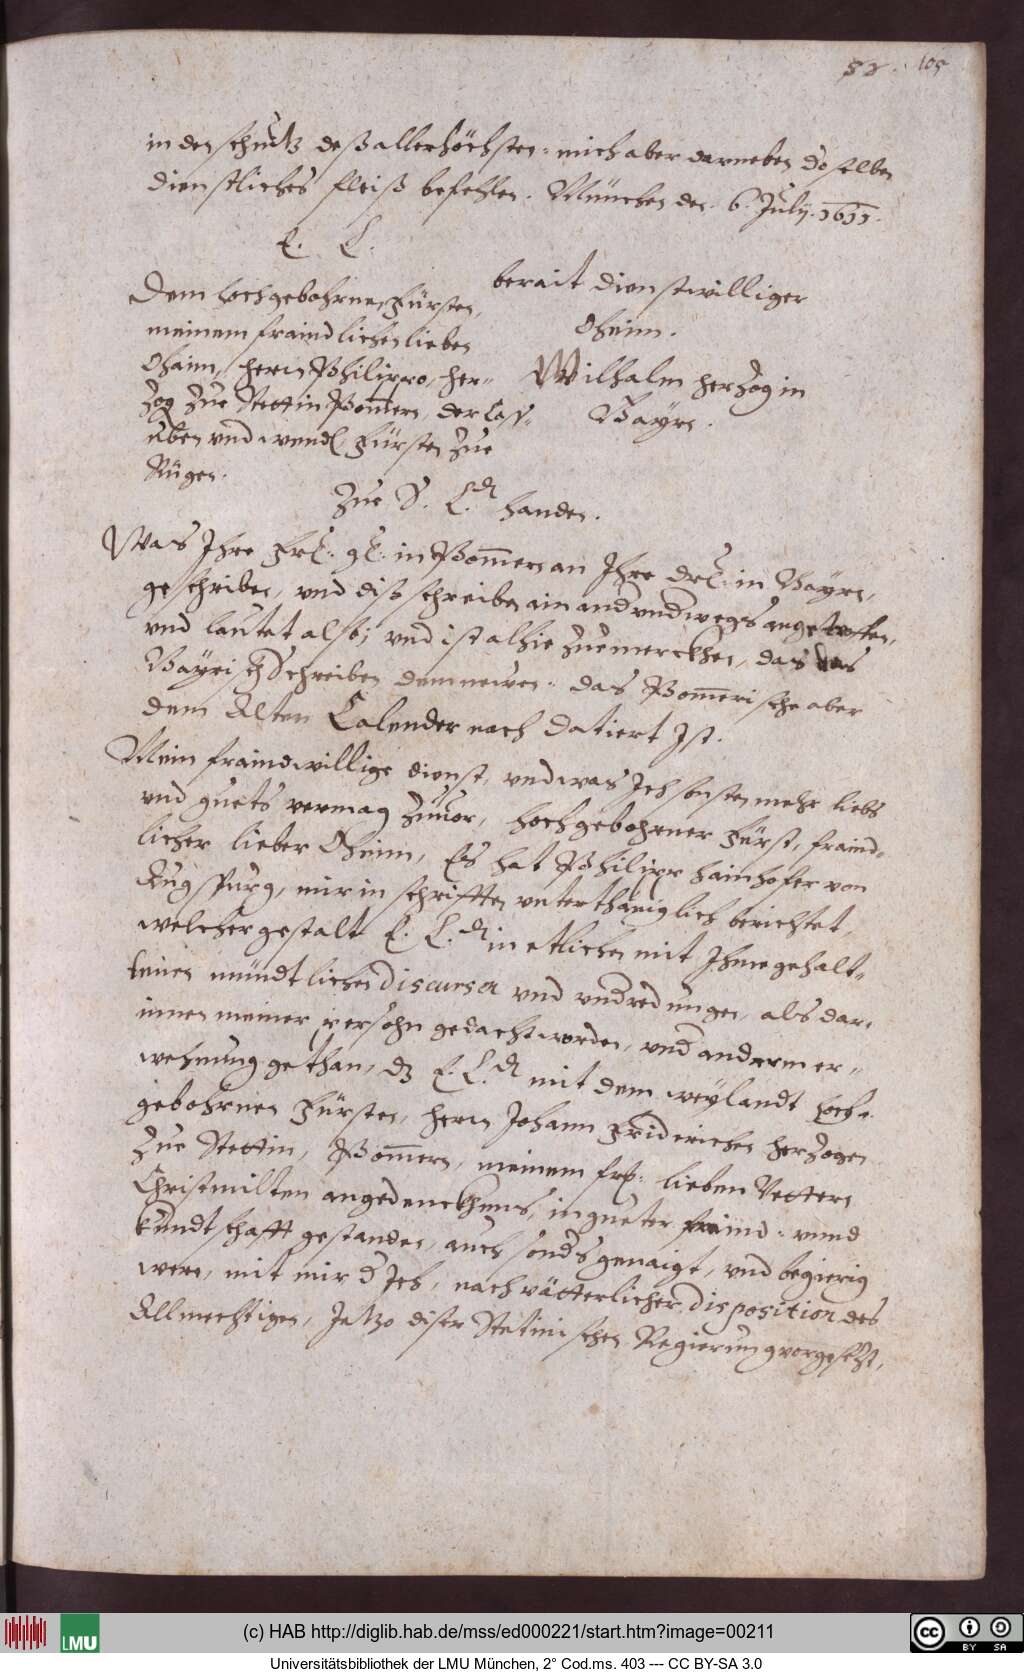 52. 105
in den schutz deß allerhöchsten: mich aber darneben do selben
dienstliches fleiß befehlen. München den 6. July. 1611.
E. L.
berait dienstwilliger
Oheim.
Wilhalm herzog in
Bayrn.
Dem hochgebohrnen Fürsten,
meinem fraindlichen lieben
Ohaim, herrn Philippo, her-
zog zue Stettin Pom̅ern, der Cass-
uben vnd wend. Fürsten zue
Rügen.
Zue S. L.d handen.
Was Ihre Frl. gl. in Pom̅ern an Ihre drl. in Bayrn,
geschriben, vnd diß schreiben ain and vndwegs angetroffen,
vnd lautet also; vnd ist alhie zue merckhen, das das
Bayrisch Schreiben dem newen: das Pom̅erische aber
dem Alten Calender nach datiert Ist.
Mein fraindwillige dienst, vnd was Ich sonsten mehr liebs
vnd guets vermag zuuor, hochgebohrner Fürst, fraind-
licher lieber Oheim, Es hat Philipp Hainhofer von
Augspurg, mir in schrifften vnterthäniglich berichtet,
welcher gestalt E. L.d in etlichen mit Ihme gehalt-
tenen mündtlichen discursen vnd vndredungen, als dar-
innen meiner persohn gedacht worden, vnd anderm er-
wehnung gethan, dz E. L.d mit dem weylandt hoch-
gebohrnen Fürsten, herrn Johann Friderichen herzogen
zue Stettin, Pom̅ern, meinem frl. lieben Vettern
Christmilten angedenckhens, in gueter fraind: vnnd
kundtschafft gestanden, auch sonds genaigt, vnd begierig
were, mit mir d Ich, nach vätterlicher disposition des
Allmechtigen, Jetzo diser Stetinischen Regierung vorgesetzt,
(c) HAB http://diglib.hab.de/mss/ed000221/start.htm?image=00211
LMU
CC BY SA
Universitätsbibliothek der LMU München, 2° Cod.ms. 403 --- CC BY-SA 3.0